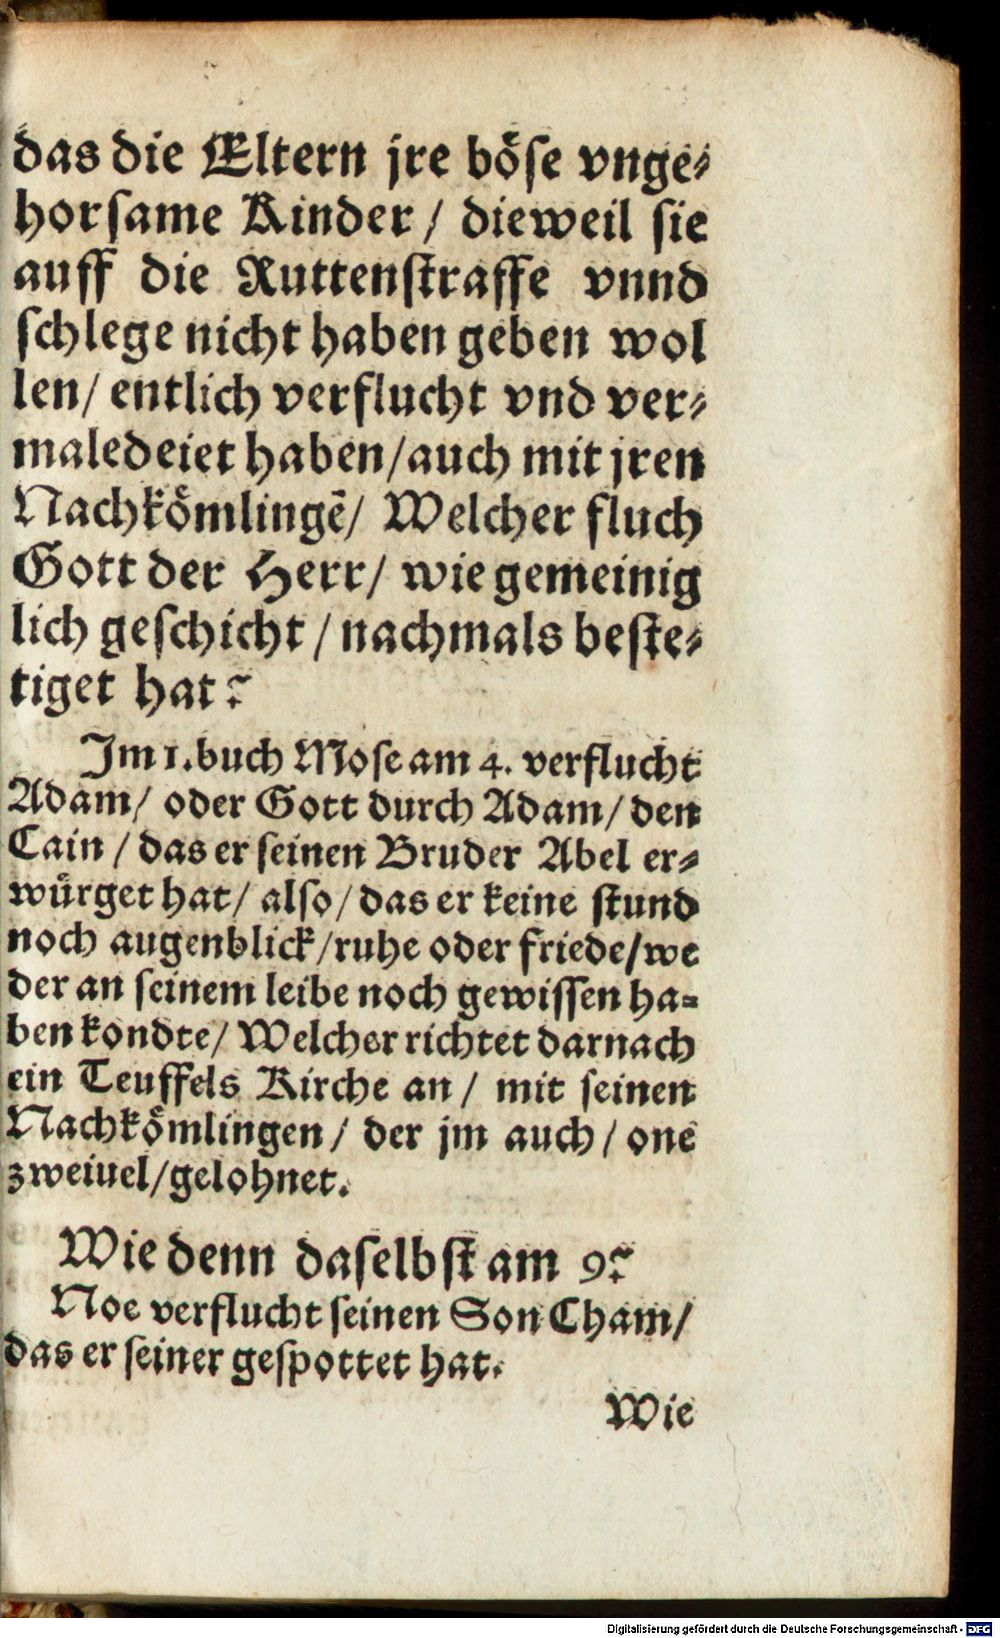 das die Eltern jre böse vnge⸗
horsame Kinder / dieweil sie
auff die Ruttenstraffe vnnd
schlege nicht haben geben wol
len / entlich verflucht vnd ver⸗
maledeiet haben / auch mit jren
Nachkömlingē / Welcher fluch
Gott der Herr / wie gemeinig
lich geschicht / nachmals beste⸗
tiget hat?
Im 1. buch Mose am 4. verflucht
Adam / oder Gott durch Adam / den
Cain / das er seinen Bruder Abel er⸗
würget hat / also / das er keine stund
noch augenblick / ruhe oder friede / we
der an seinem leibe noch gewissen ha⸗
ben kondte / Welcher richtet darnach
ein Teuffels Kirche an / mit seinen
Nachkömlingen / der jm auch / one
zweiuel / gelohnet.
Wie denn daselbst am 9?
Noe verflucht seinen Son Cham /
das er seiner gespottet hat.
Wie
Digitalisierung gefördert durch die Deutsche Forschungsgemeinschaft - DFG